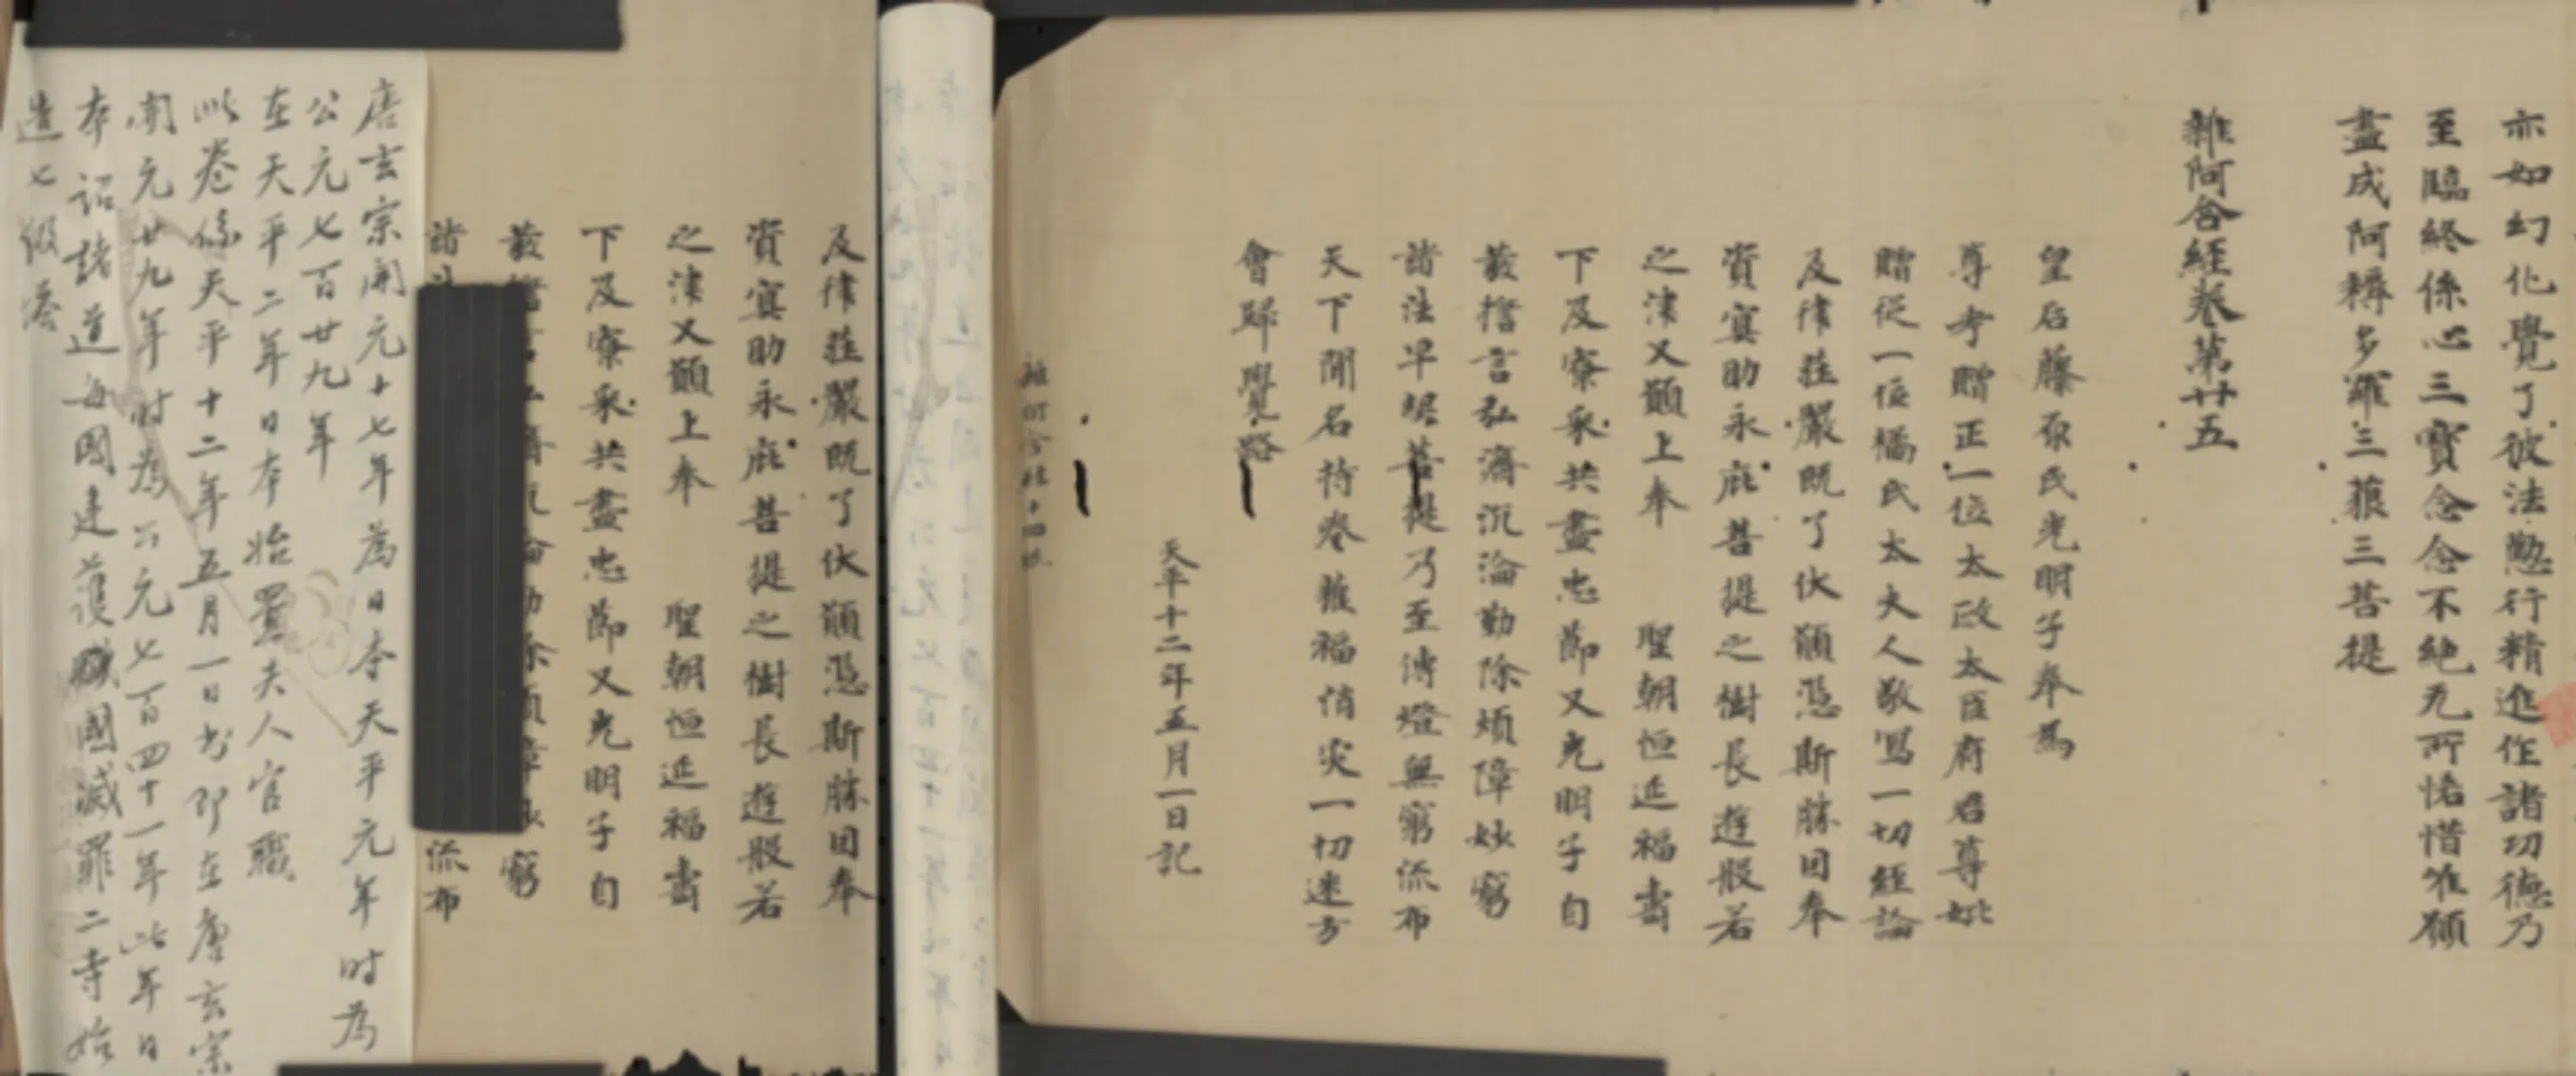 亦如幻化覺了彼法懃行精進作諸功德乃
至臨終係心三寶念念不絕无所悋惜唯願
盡成阿耨多羅三藐三菩提
雜阿含經卷第廿五
皇后藤原氏光明子奉為
尊考贈正一位太政太臣府君尊妣
贈從一位橘氏太夫人敬寫一切經論
及律莊嚴既了伏願憑斯勝因奉
資冥助永庇菩提之樹長遊般若
之津又願上奉 聖朝恒延福壽
下及寮采共盡忠節又光明子自
發擔言弘濟沉淪勤除煩障妙窮
諸法早契菩提乃至傳燈無窮流布
天下聞名持卷獲福消災一切迷方
會歸覺路
天平十二年五月一日記
及律莊嚴既了伏願憑斯勝因奉
資冥助永庇菩提之樹長遊般若
之津又願上奉 聖朝恒延福壽
下及寮采共盡忠節又光明子自
發 窮
諸 流布
唐玄宗開元十七年為日本天平元年時為
公元七百廿九年
在天平二年日本始置夫人官職
此卷係天平十二年五月一日書即在唐玄宗
開元廿九年時為公元七百四十一年此年日
本詔諸道每國建護國滅罪二寺始
造七級塔